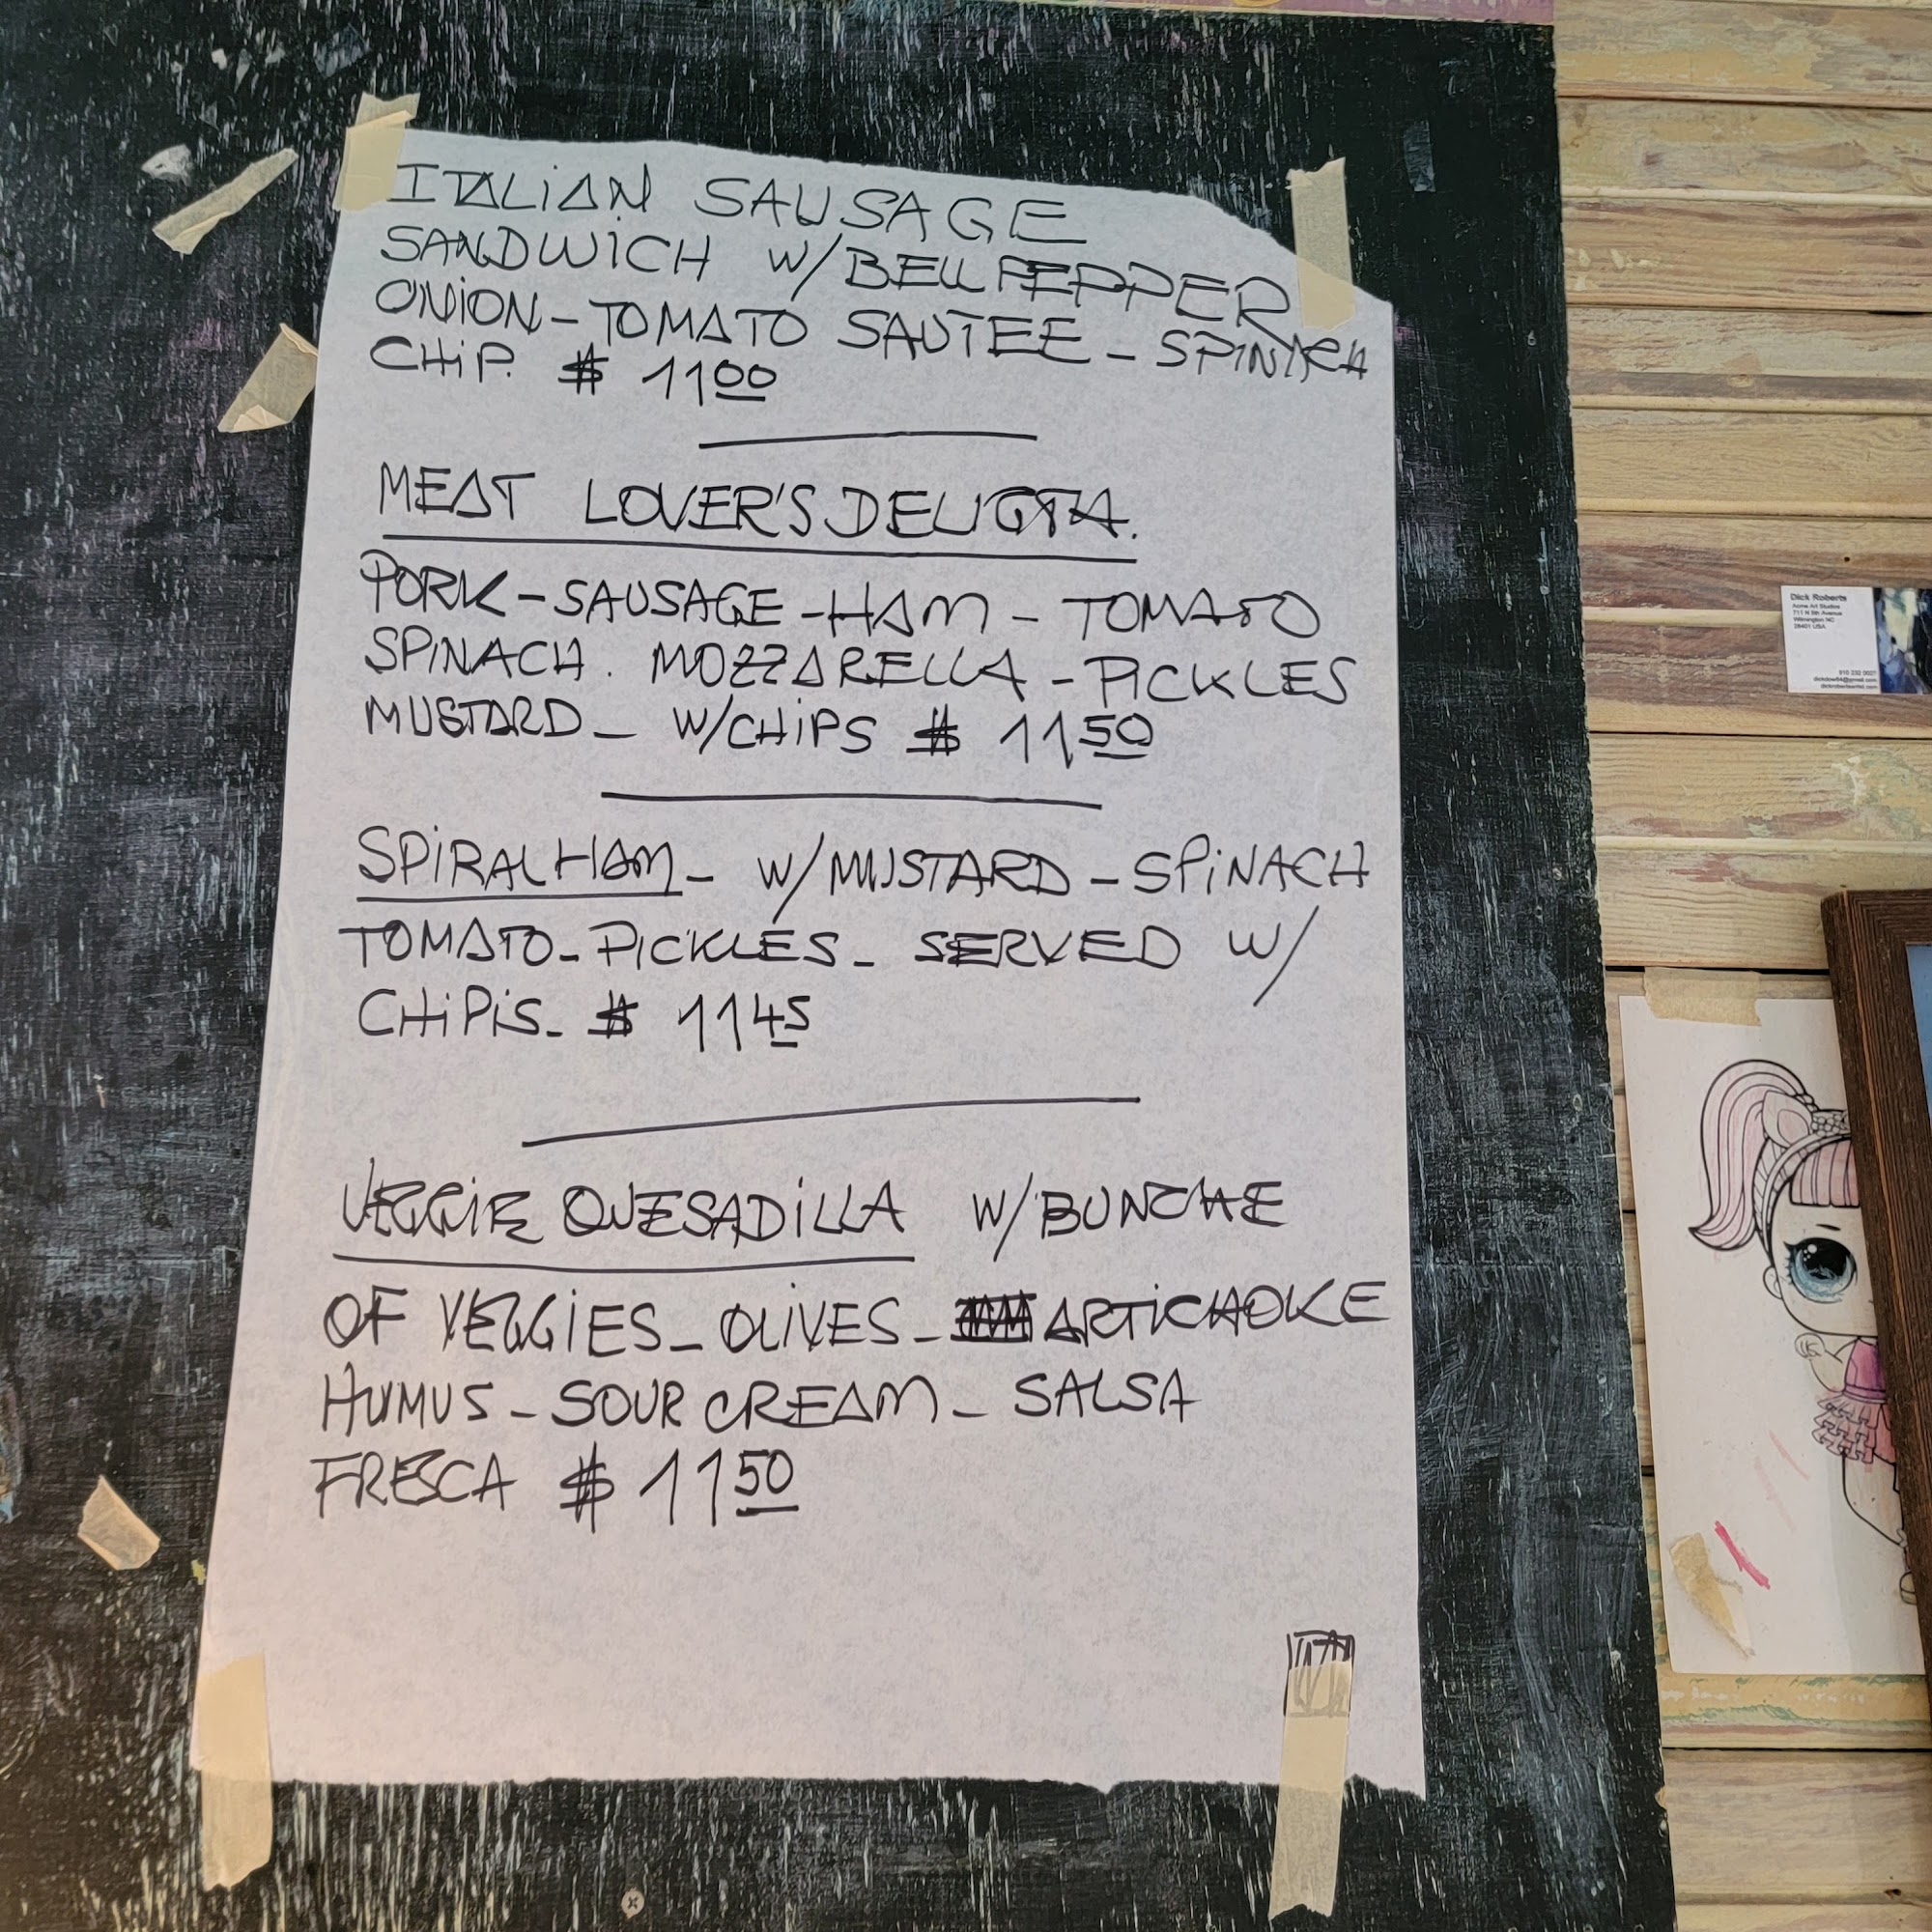 ITALIAN SAUSAGE
SANDWICH W/BELL PEPPER
ONION-TOMATO SAUTEE-SPINACH
CHIP. $ 11 00
MEAT LOVER'S DELIGTH.
PORK-SAUSAGE-HAM-TOMATO
SPINACH. MOZZARELLA-PICKLES
MUSTARD- W/CHIPS $ 11 50
SPIRAL HAM- W/MUSTARD-SPINACH
TOMATO-PICKLES- SERVED W/
CHIPIS- $ 11 45
VEGGIE QUESADILLA W/BUNCHE
OF VEGGIES-OLIVES-ARTICHOKE
HUMUS-SOUR CREAM- SALSA
FRESCA $ 11 50
Dick Roberts
Acme Art Studios
711 N 5th Avenue
Wilmington NC
28401 USA